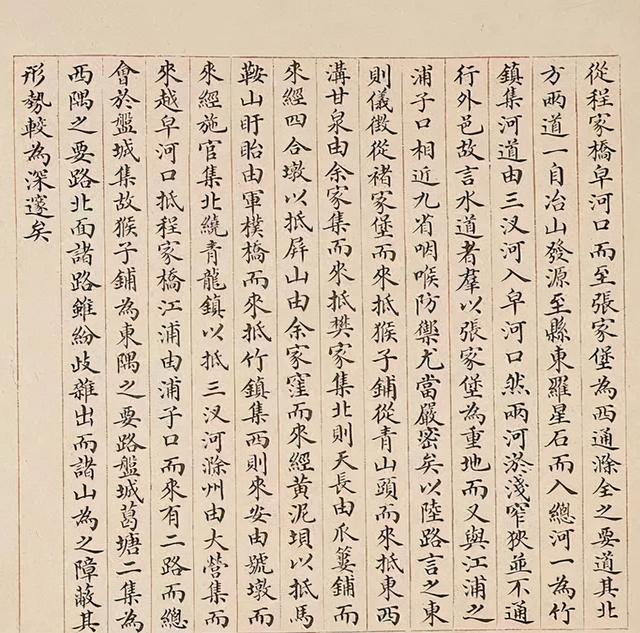 從程家橋皁河口而至張家堡為西通滁全之要道其北
方兩道一自冶山發源至縣東羅星石而入總河一為竹
鎮集河道由三汊河入皁河口然兩河淤淺窄狹並不通
行外邑故言水道者羣以張家堡為重地而又與江浦之
浦子口相近九省咽喉防禦尤當嚴密矣以陸路言之東
則儀徵從褚家堡而來抵猴子鋪從青山頭而來抵東西
溝甘泉由余家集而來抵樊家集北則天長由爪篓鋪而
來經四合墩以抵屏山由余家窪而來經黃泥垻以抵馬
鞍山盱眙由軍樸橋而來抵竹鎮集西則來安由號墩而
來經施官集北繞青龍鎮以抵三汊河滁州由大營集而
來越皁河口抵程家橋江浦由浦子口而來有二路而總
會於盤城集故猴子鋪為東隅之要路盤城葛塘二集為
西隅之要路北面諸路雖紛歧雜出而諸山為之障蔽其
形勢較為深邃矣